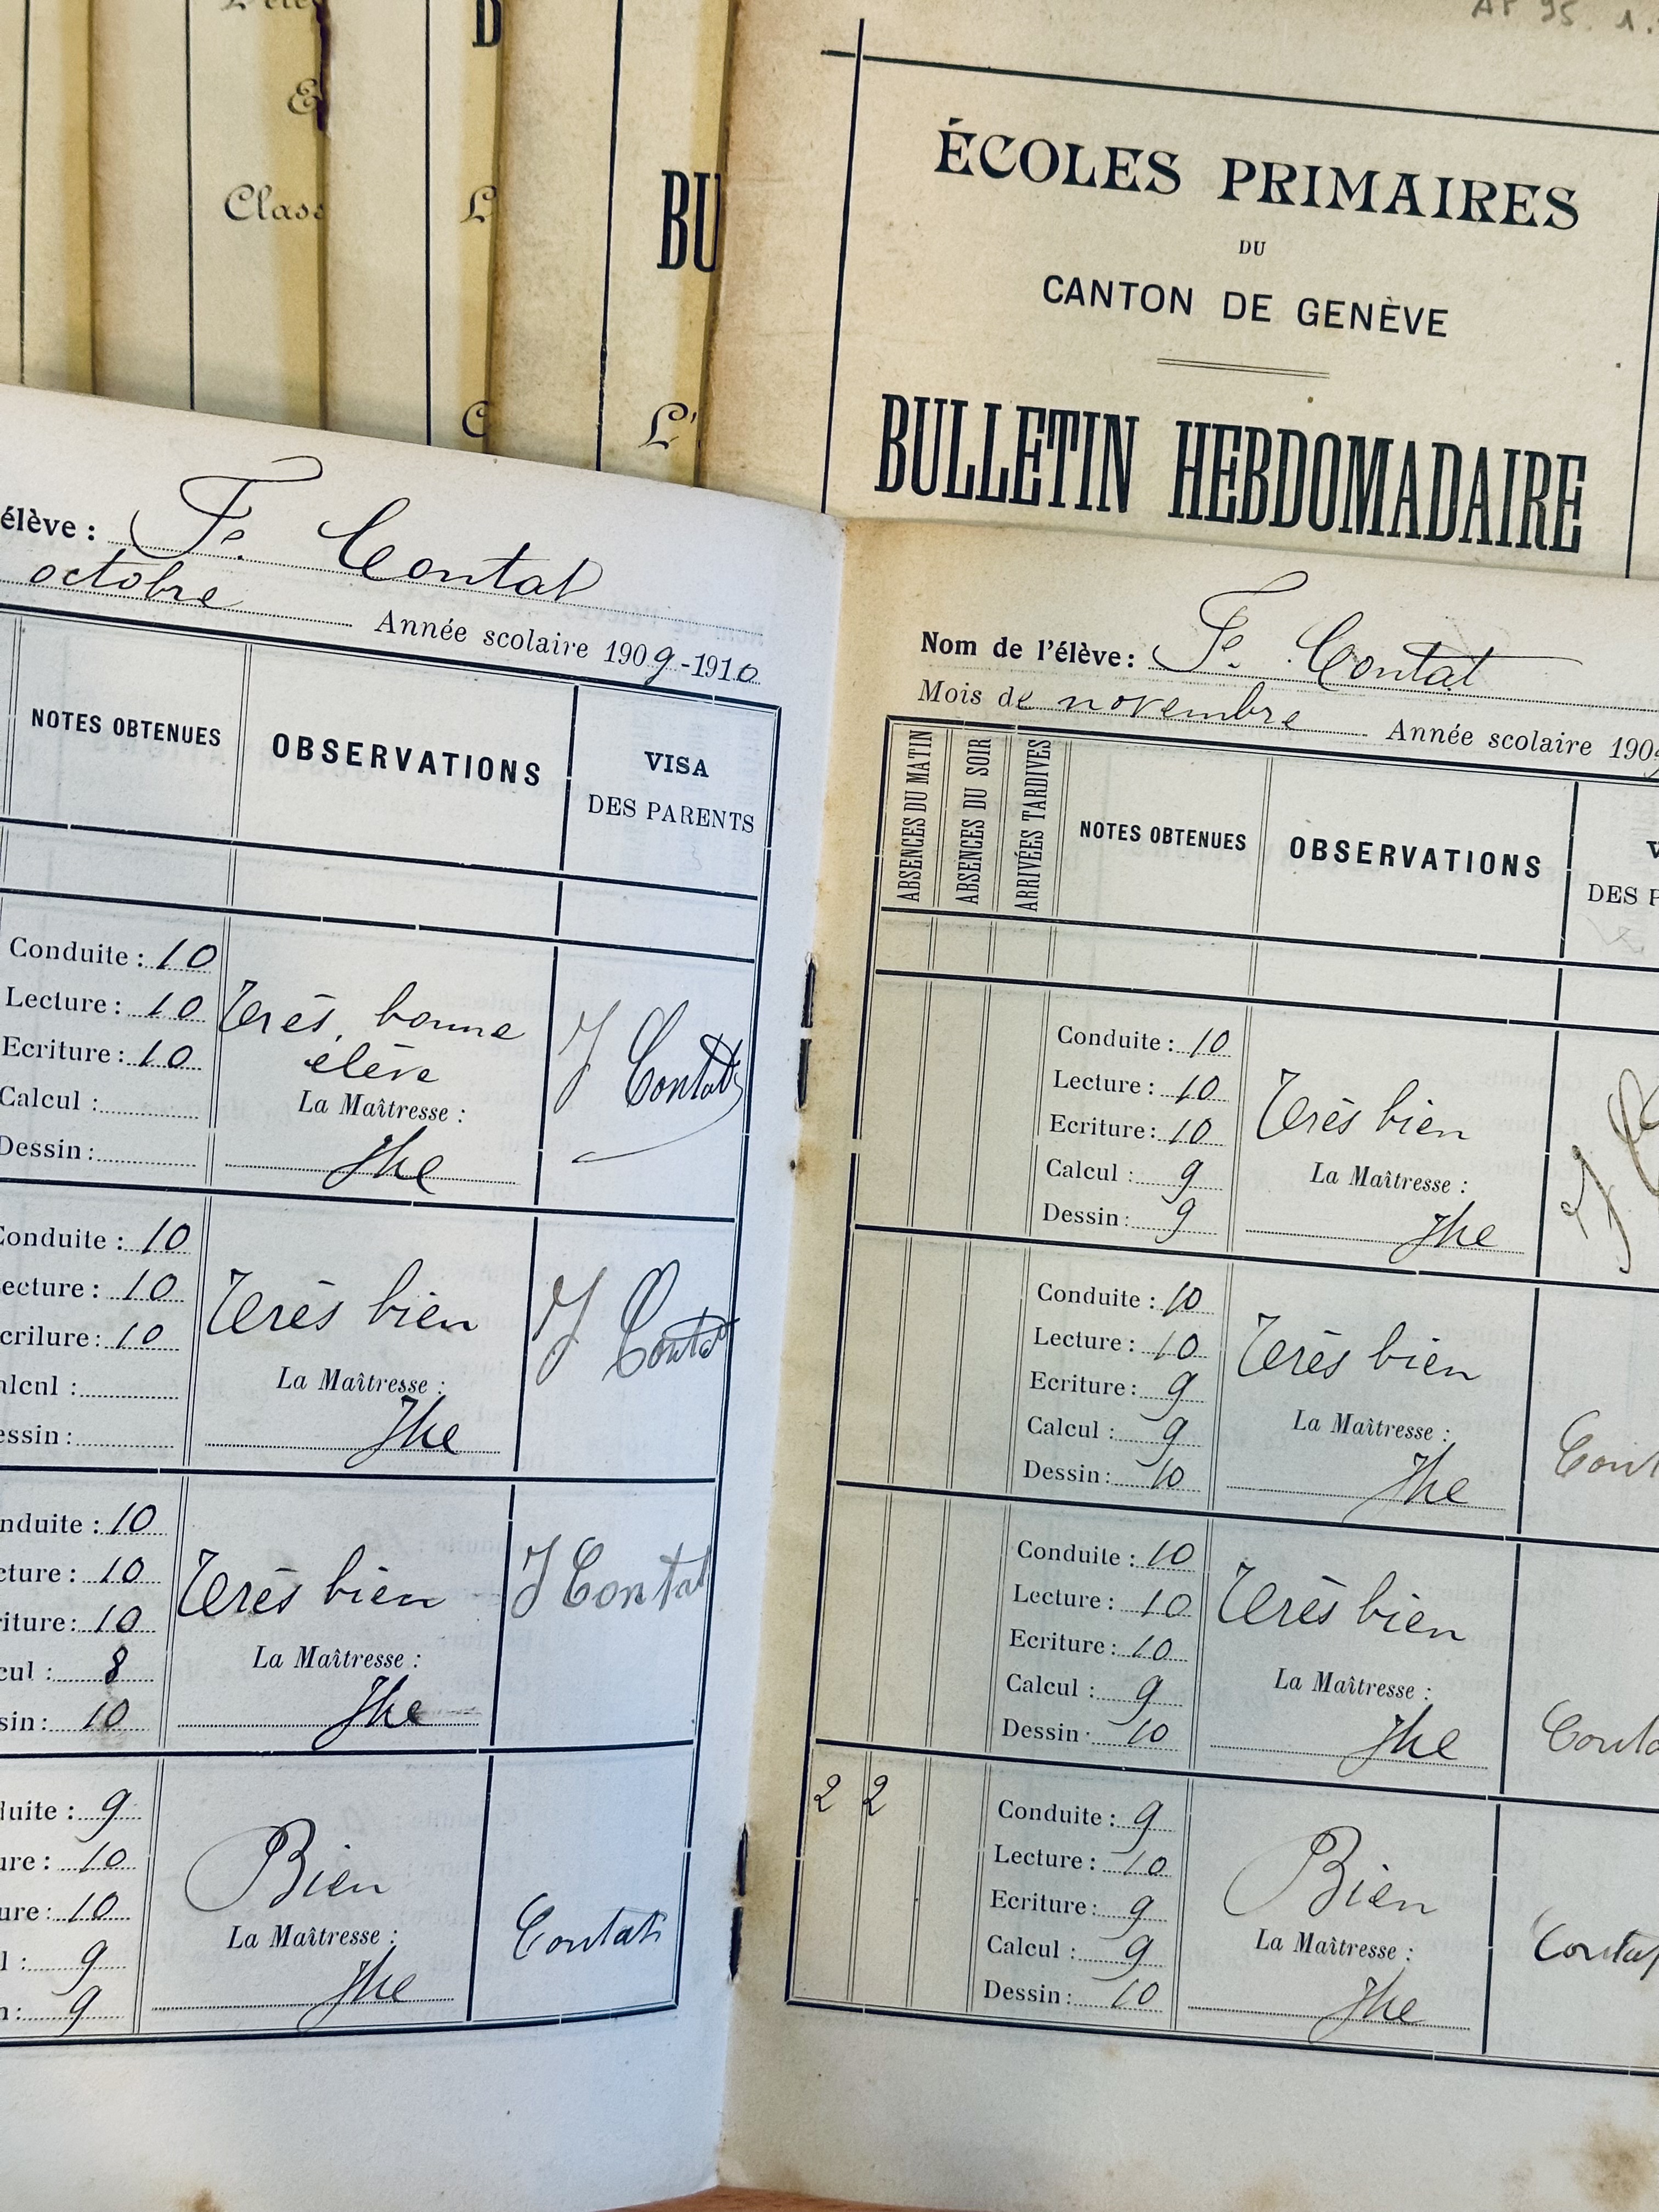 ÉCOLES PRIMAIRES
DU
CANTON DE GENÈVE
BULLETIN HEBDOMADAIRE
Clas
BU
L'
élève : F. Contat
octobre Année scolaire 1909-1910
NOTES OBTENUES
OBSERVATIONS
VISA
DES PARENTS
Conduite : 10
Lecture : 10
Ecriture : 10
Calcul :
Dessin :
Très bonne
élève
La Maîtresse :
J Contat
Conduite : 10
ecture : 10
crilure : 10
alcnl :
essin :
Très bien
La Maîtresse :
J Contat
nduite : 10
cture : 10
riture : 10
cul : 8
sin : 10
Très bien
La Maîtresse :
J Contat
duite : 9
ure : 10
ure : 10
l : 9
n : 9
Bien
La Maîtresse :
Contat
Nom de l'élève : F. Contat
Mois de novembre Année scolaire 1909
ABSENCES DU MATIN
ABSENCES DU SOIR
ARRIVÉES TARDIVES
NOTES OBTENUES
OBSERVATIONS
V
DES P
Conduite : 10
Lecture : 10
Ecriture : 10
Calcul : 9
Dessin : 9
Très bien
La Maîtresse :
Conduite : 10
Lecture : 10
Ecriture : 9
Calcul : 9
Dessin : 10
Très bien
La Maîtresse :
Cont
Conduite : 10
Lecture : 10
Ecriture : 10
Calcul : 9
Dessin : 10
Très bien
La Maîtresse :
Conta
2 2
Conduite : 9
Lecture : 10
Ecriture : 9
Calcul : 9
Dessin : 10
Bien
La Maîtresse :
Contat